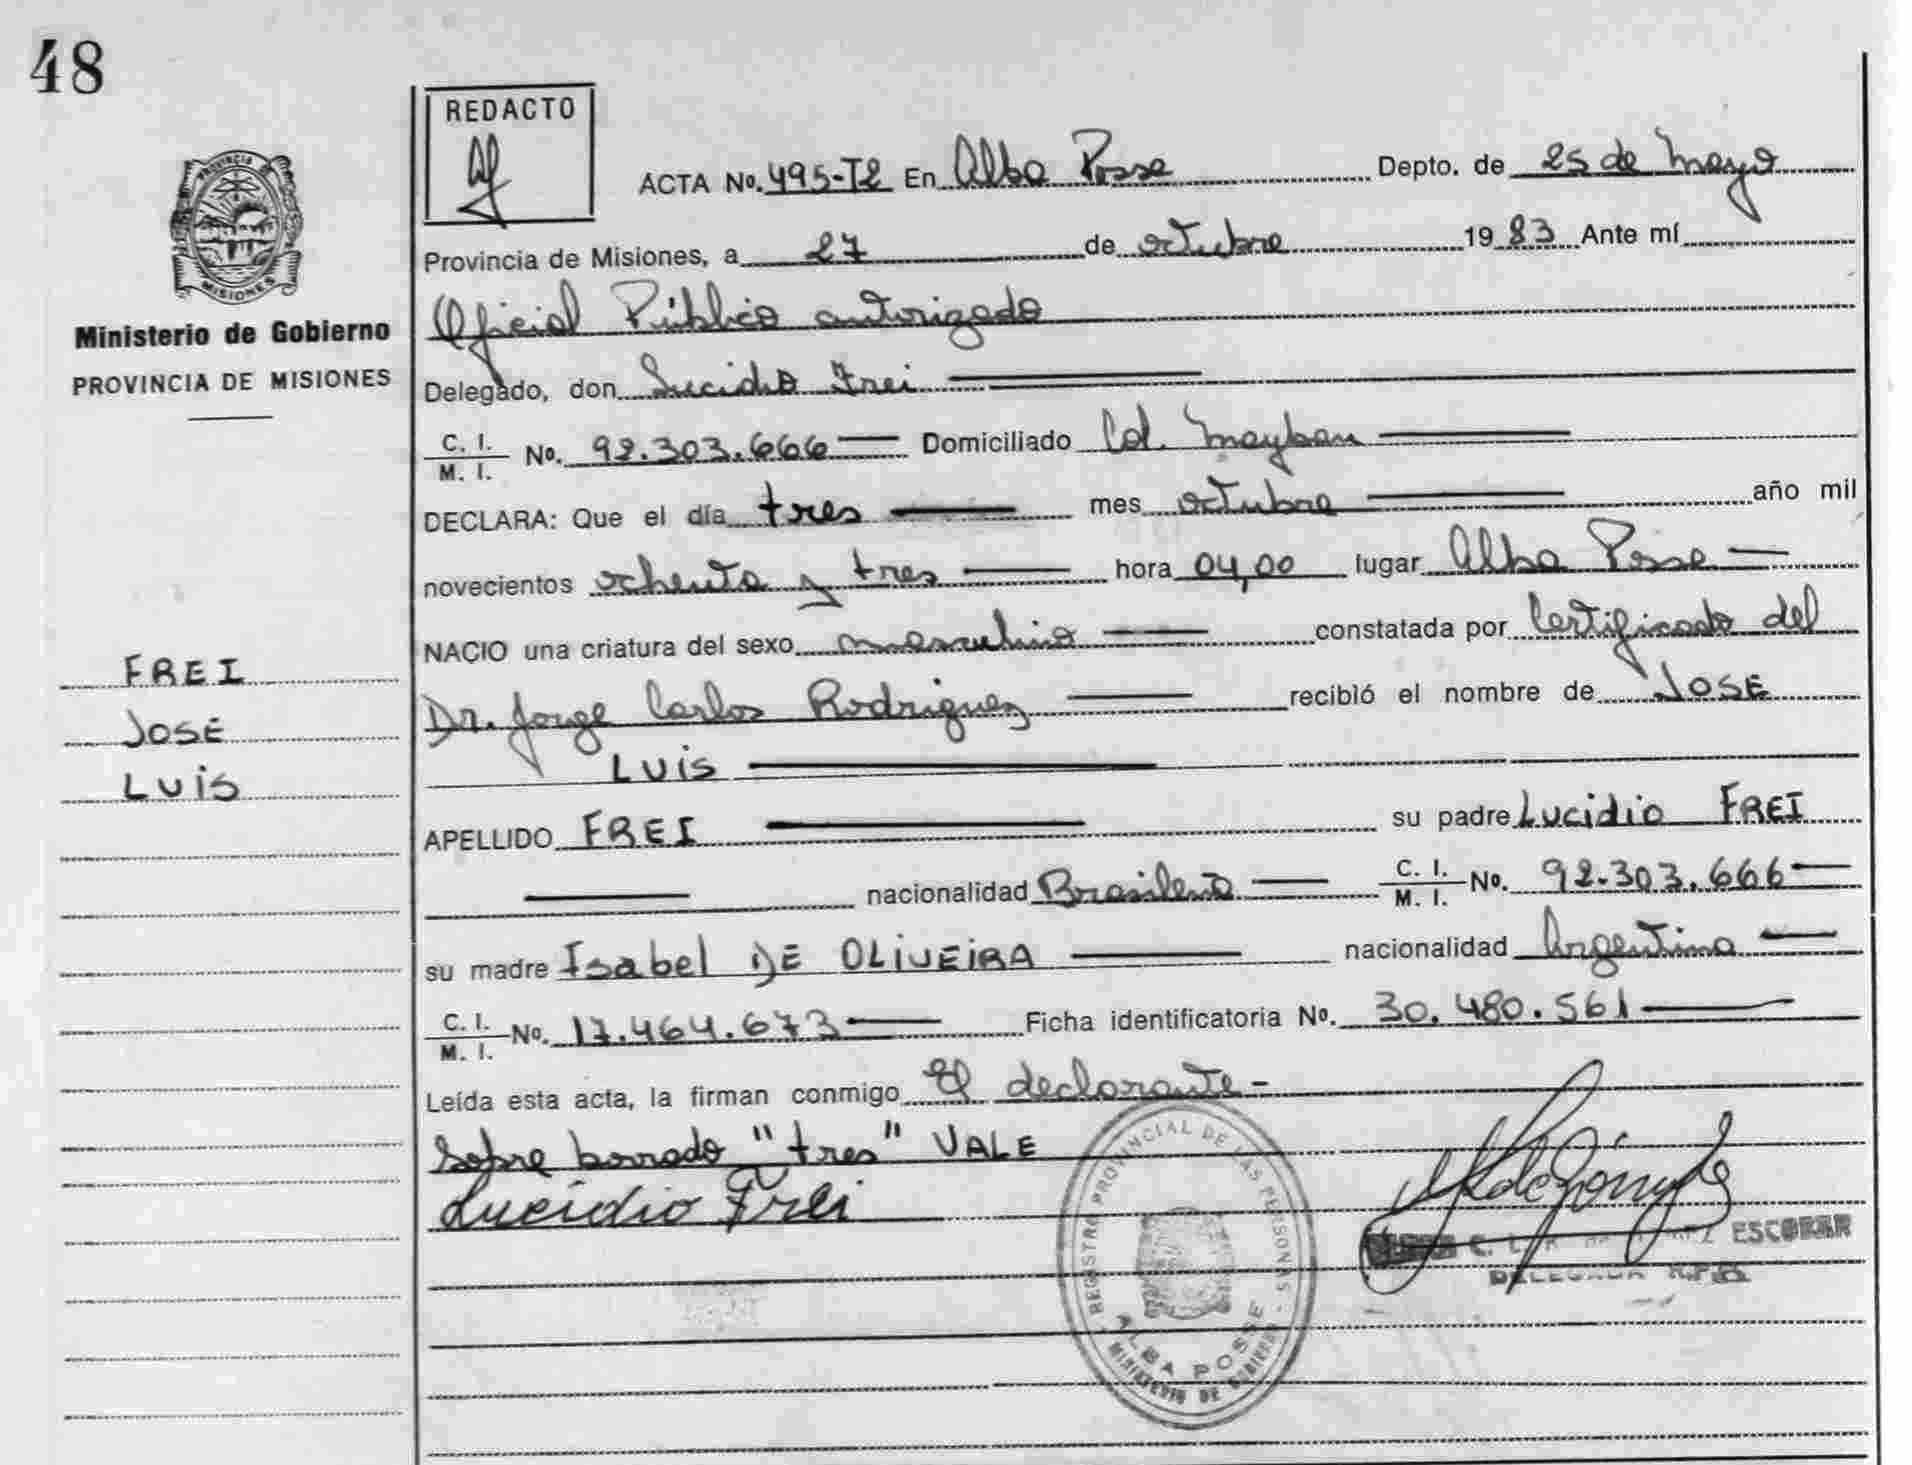 48
REDACTO
PROVINCIA DE
MISIONES
Ministerio de Gobierno
PROVINCIA DE MISIONES
FREI
JOSÉ
LUIS
ACTA No. 495-T2 En Alba Posse Depto. de 25 de Mayo
Provincia de Misiones, a 27 de octubre 1983 Ante mí
Oficial Público autorizado
Delegado, don Lucidio Frei
C. I. M. I. No. 92.303.666 Domiciliado Col. Mayban
DECLARA: Que el día tres mes octubre año mil
novecientos ochenta y tres hora 04,00 lugar Alba Posse
NACIO una criatura del sexo masculino constatada por Certificado del
Dr. Jorge Carlos Rodriguez recibió el nombre de JOSÉ
LUIS
APELLIDO FREI su padre Lucidio FREI
nacionalidad Brasileña C. I. M. I. No. 92.303.666
su madre Isabel DE OLIVEIRA nacionalidad Argentina
C. I. M. I. No. 17.464.673 Ficha identificatoria No. 30.480.561
Leída esta acta, la firman conmigo El declarante-
Sobre borrado "tres" VALE
Lucidio Frei
REGISTRO PROVINCIAL DE LAS PERSONAS
ALBA POSSE
MINISTERIO DE GOBIERNO
ESCOBAR
DELEGADA R.P.P.